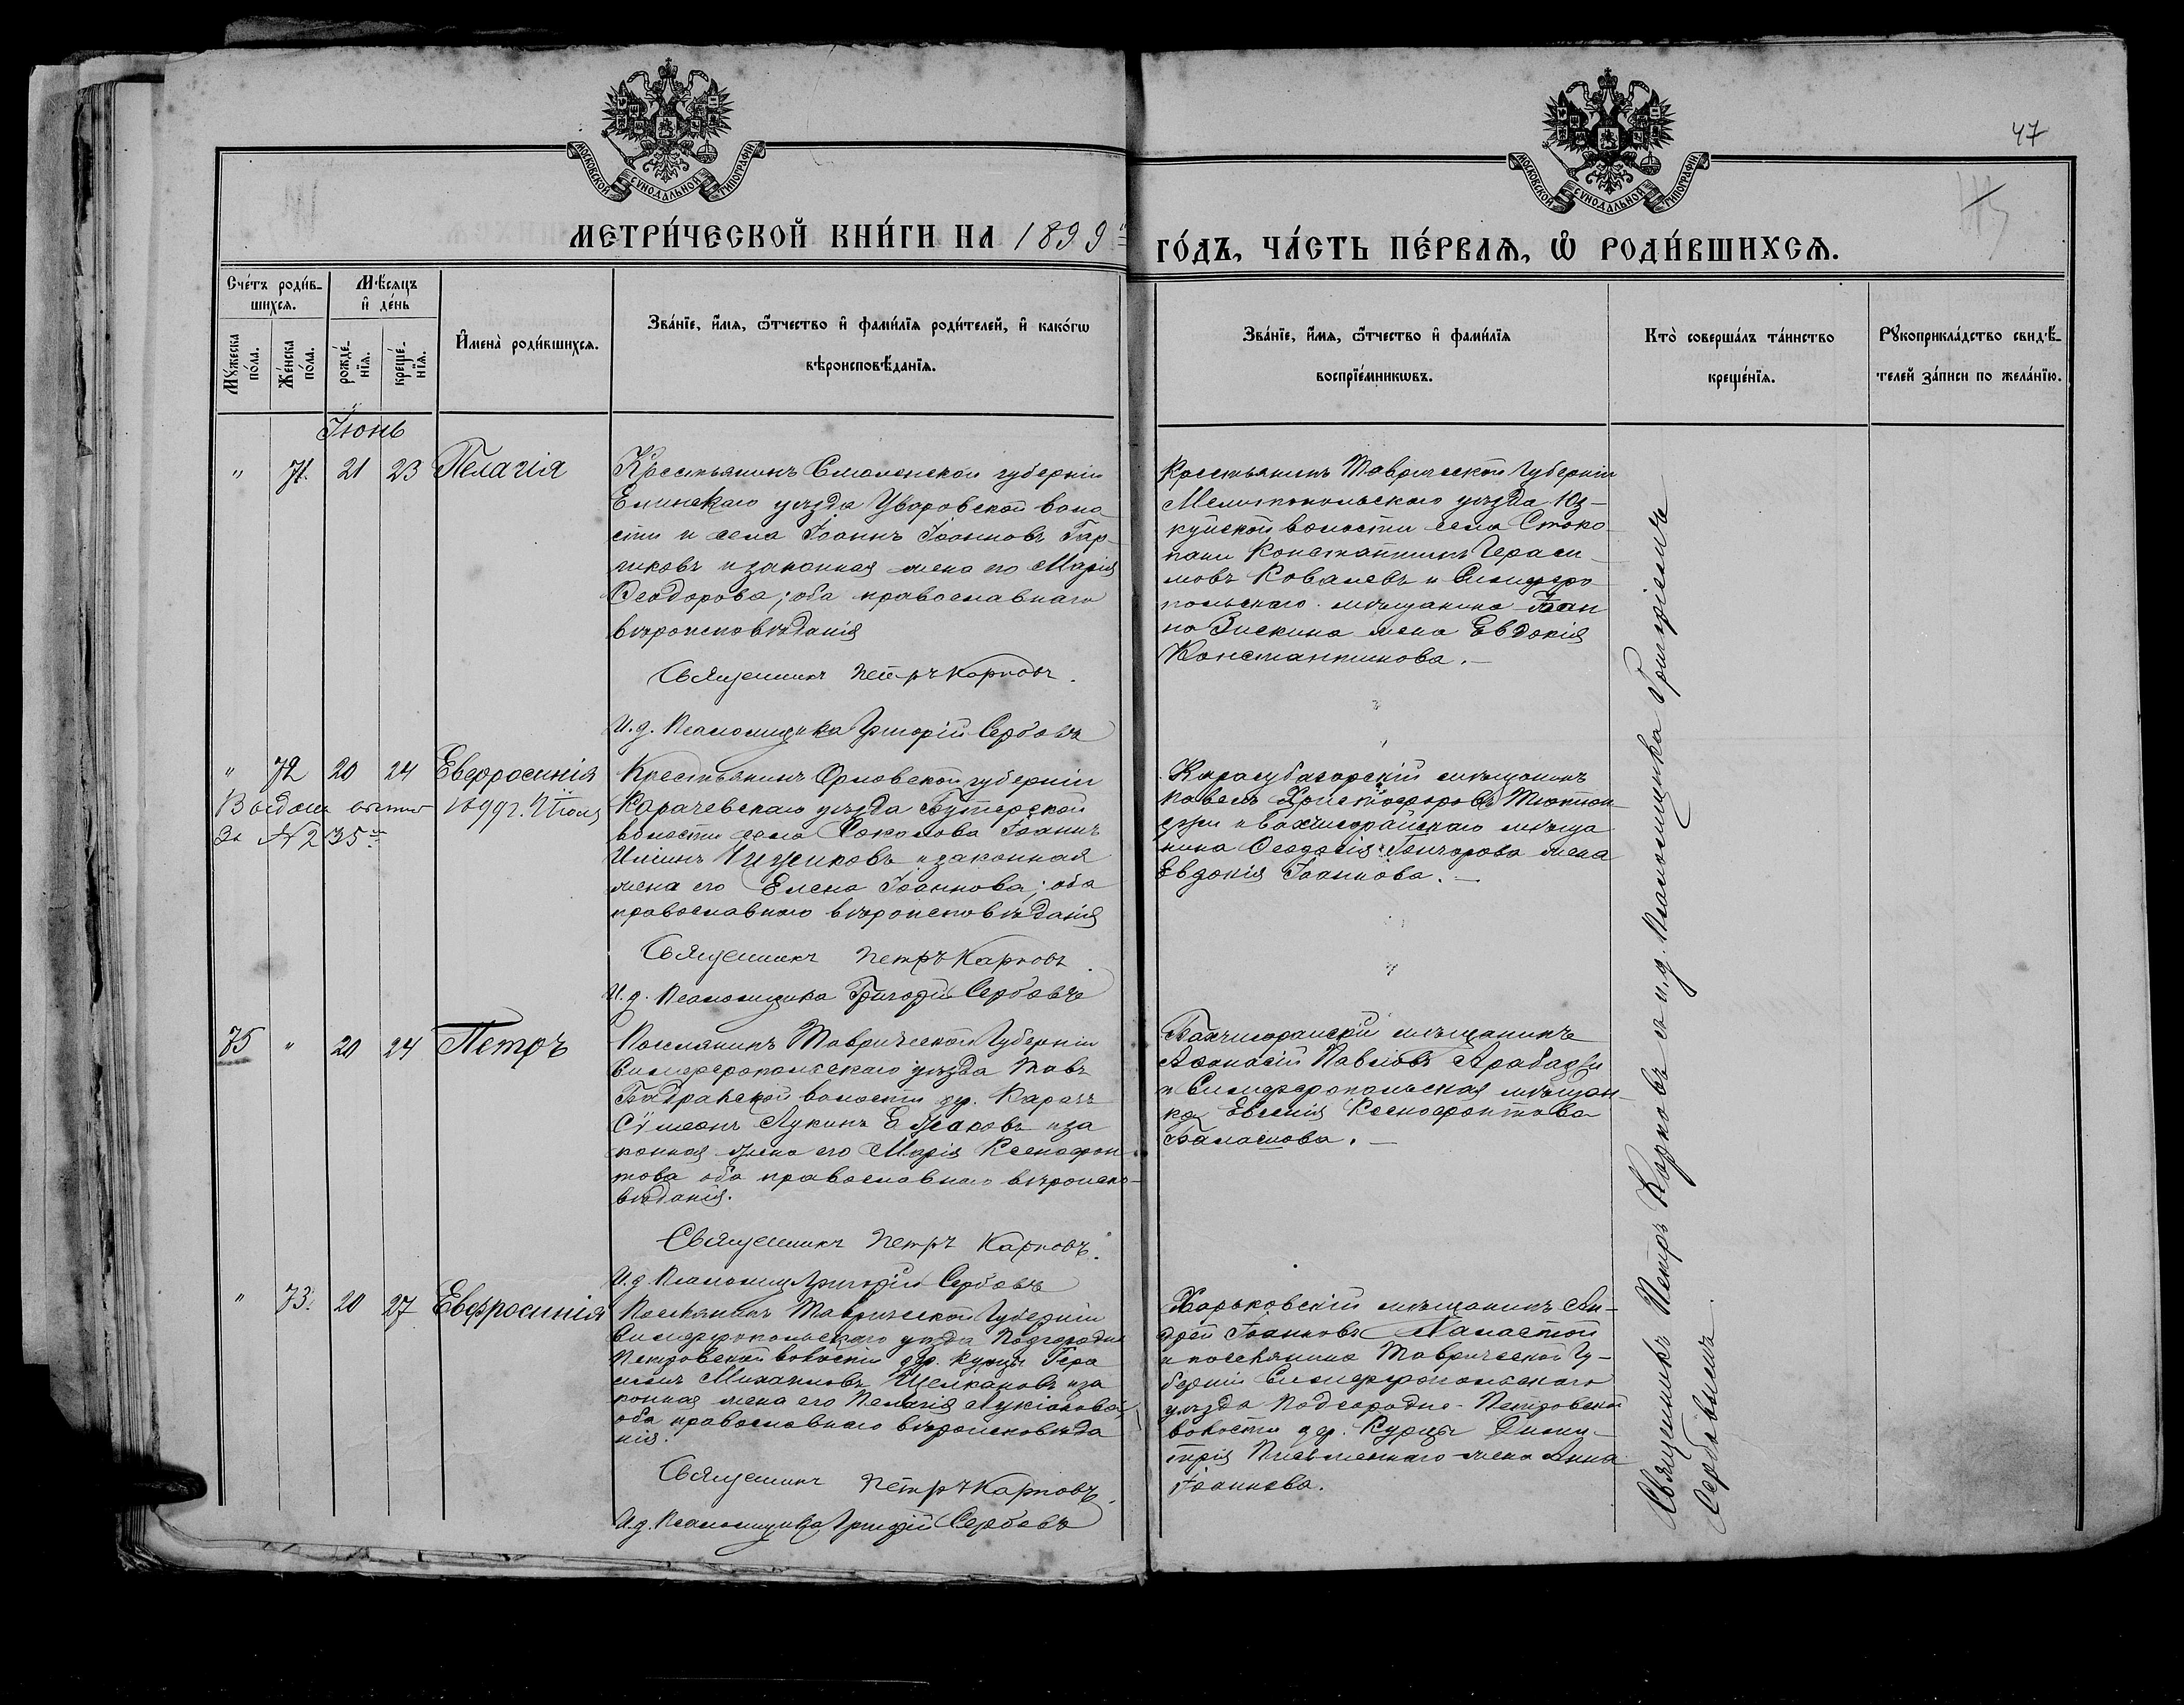 47
МОСКОВСКОЙ СѴНОДАЛЬНОЙ ТИПОГРАФІИ
МОСКОВСКОЙ СѴНОДАЛЬНОЙ ТИПОГРАФІИ
МЕТРИ́ЧЕСКОЙ КНИ́ГИ НА 1899 ГО́ДЪ, ЧА́СТЬ ПЕ́РВАѦ, Ѡ҆ РОДИ́ВШИХСѦ.
Сче́тъ роди́в-
шихсѧ.
Мꙋ́жеска по́ла.
Же́нска по́ла.
Мѣ́сѧцъ
и҆ де́нь
рожде́-
нїѧ.
креще́-
нїѧ.
И҆мена̀ роди́вшихсѧ.
Зва́нїе, и҆́мѧ, ѻ҆́тчество и҆ фами́лїѧ роди́телей, и҆ како́гѡ
вѣроисповѣ́данїѧ.
Зва́нїе, и҆́мѧ, ѻ҆́тчество и҆ фами́лїѧ
воспрїе́мникѡвъ.
Кто̀ соверша́лъ та́инство
креще́нїѧ.
Рꙋкоприкла́дство свидѣ́-
телей за́писи по жела́нїю.
Іюнь
" 71. 21 23 Пелагія
Крестьянинъ Смоленской губерніи
Елинскаго уѣзда Уваровской воло
сти и села Іоаннъ Іоанновъ Гар-
ковъ и законная жена его Марія
Ѳеодорова; оба православнаго
вѣроисповѣданія
Священникъ Петръ Карповъ.
И.д. Псаломщика Григорій Сербовъ
Крестьянинъ Таврической Губерніи
Мелитопольскаго уѣзда Юз-
куйской волости села Стоко-
пани Константинъ Гераси-
мовъ Ковалевъ и Симферо
польскаго мѣщанина Іоан
на Зискина жена Евдокія
Константинова. —
" 72 20 24 Евфросинія
Выдана выпись 1899 г. Іюля
За № 235
Крестьянинъ Орловской губерніи
Карачевскаго уѣзда Бутерской
волости села Соколова Іоаннъ
Ильинъ Чижиковъ и законная
жена его Елена Іоаннова; оба
православнаго вѣроисповѣданія
Священникъ Петръ Карповъ
И.д. Псаломщика Григорій Сербовъ
Карасубазарскій мѣщанинъ
Павелъ Христофоровъ Тютюн
джи и Бахчисарайскаго мѣща
нина Ѳеодосія Гончарова жена
Евдокія Іоаннова. —
75 " 20 24 Петръ
Поселянинъ Таврической Губерніи
Симферопольскаго уѣзда Тавъ
Бадракской волости др. Карачъ
Сѵмеонъ Лукинъ Ежаковъ и за
конная жена его Марія Ксенофон
това оба православнаго вѣроиспо-
вѣданія.
Священникъ Петръ Карповъ.
И.д. Псаломщ Григорій Сербовъ
Бахчисарайскій мѣщанинъ
Аѳанасій Павловъ Арабаджи
и Симферопольская мѣщан-
ка Евгенія Ксенофонтова
Балашова. —
" 73. 20 27 Евфросинія
Поселянинъ Таврической Губерніи
Симферопольскаго уѣзда Подгородне
Петровской волости дер. Курцы Гера
симъ Михаиловъ Щелкановъ и за
конная жена его Пелагія Лукіанова
оба православнаго вѣроисповѣда
нія.
Священникъ Петръ Карповъ.
И.д. Псаломщика Григорій Сербовъ
Харьковскій мѣщанинъ Ан-
дрей Іоанновъ
и поселянина Таврической Гу-
берніи Симферопольскаго
уѣзда Подгородне-Петровской
волости дер. Курцы Дими-
трія Письменнаго жена Анна
Іоаннова.
Священникъ Петръ Карповъ съ и.д. Псаломщика Григоріемъ
Сербовымъ.